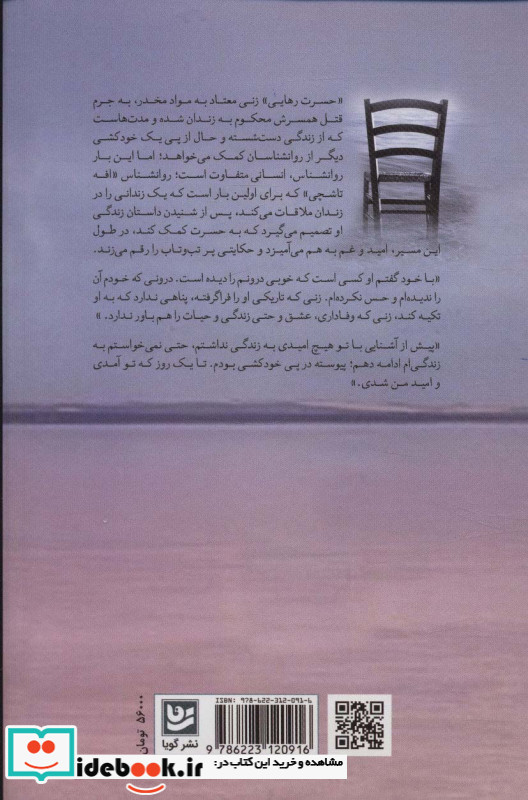 «حسرت رهایی» زنی معتاد به مواد مخدر، به جرم
قتل همسرش محکوم به زندان شده و مدت‌هاست
که از زندگی دست‌شسته و حال از پی یک خودکشی
دیگر از روانشناسان کمک می‌خواهد؛ اما این بار
روانشناس، انسانی متفاوت است؛ روانشناس «افه
تاشچی» که برای اولین بار است که یک زندانی را در
زندان ملاقات می‌کند، پس از شنیدن داستان زندگی
او تصمیم می‌گیرد که به حسرت کمک کند، در طول
این مسیر، امید و غم به هم می‌آمیزد و حکایتی پر تب‌وتاب را رقم می‌زند.
«با خود گفتم او کسی است که خوبی درونم را دیده است. درونی که خودم آن
را ندیده‌ام و حس نکرده‌ام. زنی که تاریکی او را فراگرفته، پناهی ندارد که به او
تکیه کند، زنی که وفاداری، عشق و حتی زندگی و حیات را هم باور ندارد. »
«پیش از آشنایی با تو هیچ امیدی به زندگی نداشتم، حتی نمی‌خواستم به
زندگی‌ام ادامه دهم؛ پیوسته در پی خودکشی بودم. تا یک روز که تو آمدی و
و امید من شدی. »
۵۶۰۰۰ تومان
نشر گویا
ISBN: ۹۷۸-۶۲۲-۳۱۲-۰۹۱-۶
9 786223 120916
مشاهده و خرید این کتاب در:
idebook.ir